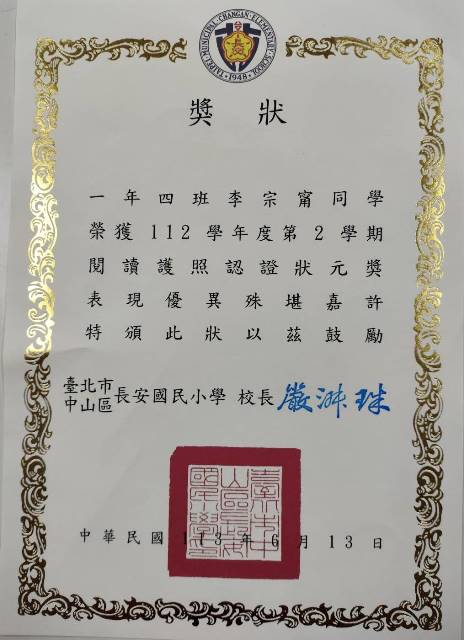 TAIPEI MUNICIPAL CHANGAN ELEMENTARY SCHOOL
1948
獎狀
一年四班李宗甯同學
榮獲112學年度第2學期
閱讀護照認證狀元獎
表現優異殊堪嘉許
特頒此狀以茲鼓勵
臺北市中山區長安國民小學 校長 嚴淑珠
中華民國113年6月13日